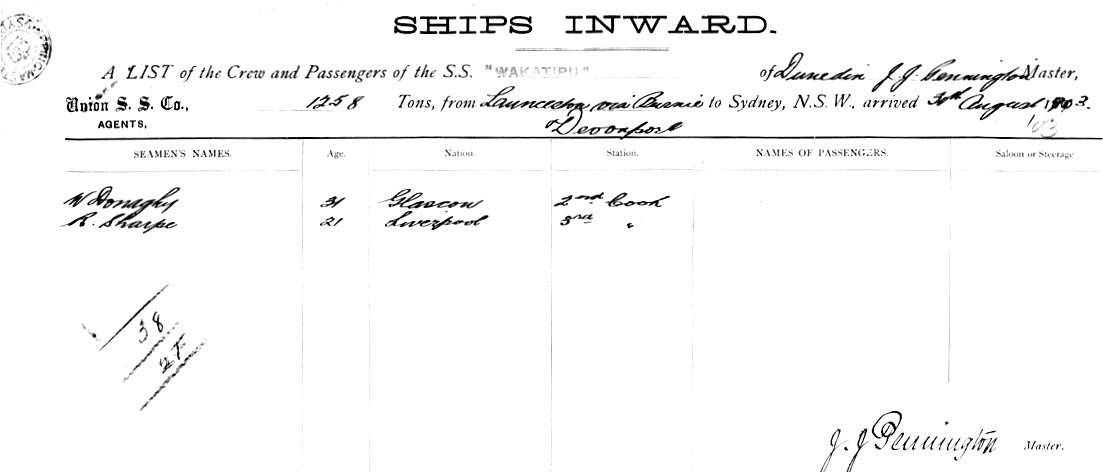 SHIPS INWARD.
A LIST of the Crew and Passengers of the S.S. "WAKATIPU" of Dunedin J. J. Pennington Master,
Union S. S. Co., 1258 Tons, from Launceston via Burnie to Sydney, N.S.W., arrived August 1903.
AGENTS, Devonport
SEAMEN'S NAMES. Age. Nation. Station. NAMES OF PASSENGERS. Saloon or Steerage
W Donaghy 31 Glascow 2nd Cook
R. Sharpe 21 Liverpool 3rd "
38
J. J Pennington Master.